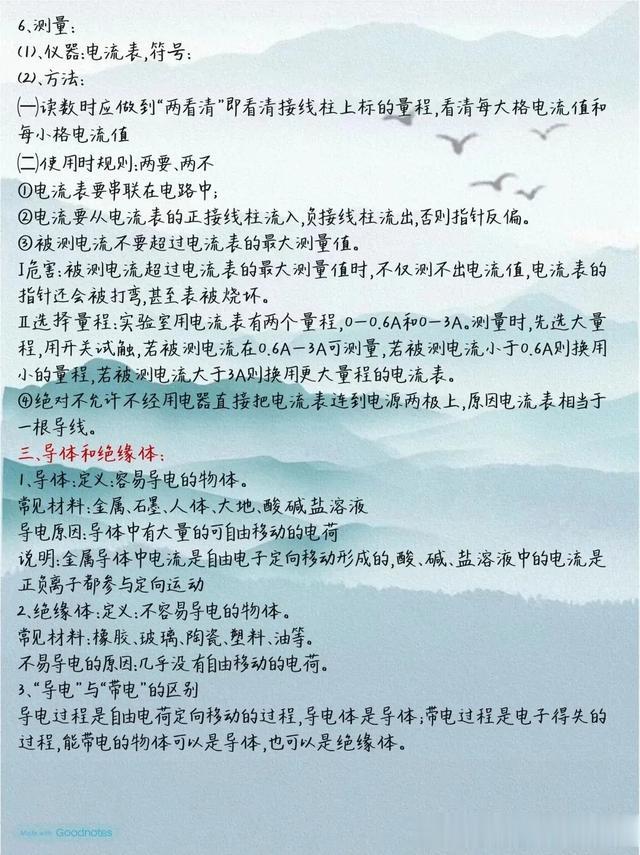 6、测量:
⑴、仪器:电流表,符号:
⑵、方法:
㈠读数时应做到“两看清”即看清接线柱上标的量程,看清每大格电流值和
每小格电流值
㈡使用时规则:两要、两不
①电流表要串联在电路中;
②电流要从电流表的正接线柱流入,负接线柱流出,否则指针反偏。
③被测电流不要超过电流表的最大测量值。
Ⅰ危害:被测电流超过电流表的最大测量值时,不仅测不出电流值,电流表的
指针还会被打弯,甚至表被烧坏。
Ⅱ选择量程:实验室用电流表有两个量程,0—0.6A和0—3A。测量时,先选大量
程,用开关试触,若被测电流在0.6A—3A可测量,若被测电流小于0.6A则换用
小的量程,若被测电流大于3A则换用更大量程的电流表。
④绝对不允许不经用电器直接把电流表连到电源两极上,原因电流表相当于
一根导线。
三、导体和绝缘体:
1、导体:定义:容易导电的物体。
常见材料:金属、石墨、人体、大地、酸碱盐溶液
导电原因:导体中有大量的可自由移动的电荷
说明:金属导体中电流是自由电子定向移动形成的,酸、碱、盐溶液中的电流是
正负离子都参与定向运动
2、绝缘体:定义:不容易导电的物体。
常见材料:橡胶、玻璃、陶瓷、塑料、油等。
不易导电的原因:几乎没有自由移动的电荷。
3、“导电”与“带电”的区别
导电过程是自由电荷定向移动的过程,导电体是导体;带电过程是电子得失的
过程,能带电的物体可以是导体,也可以是绝缘体。
Made with Goodnotes